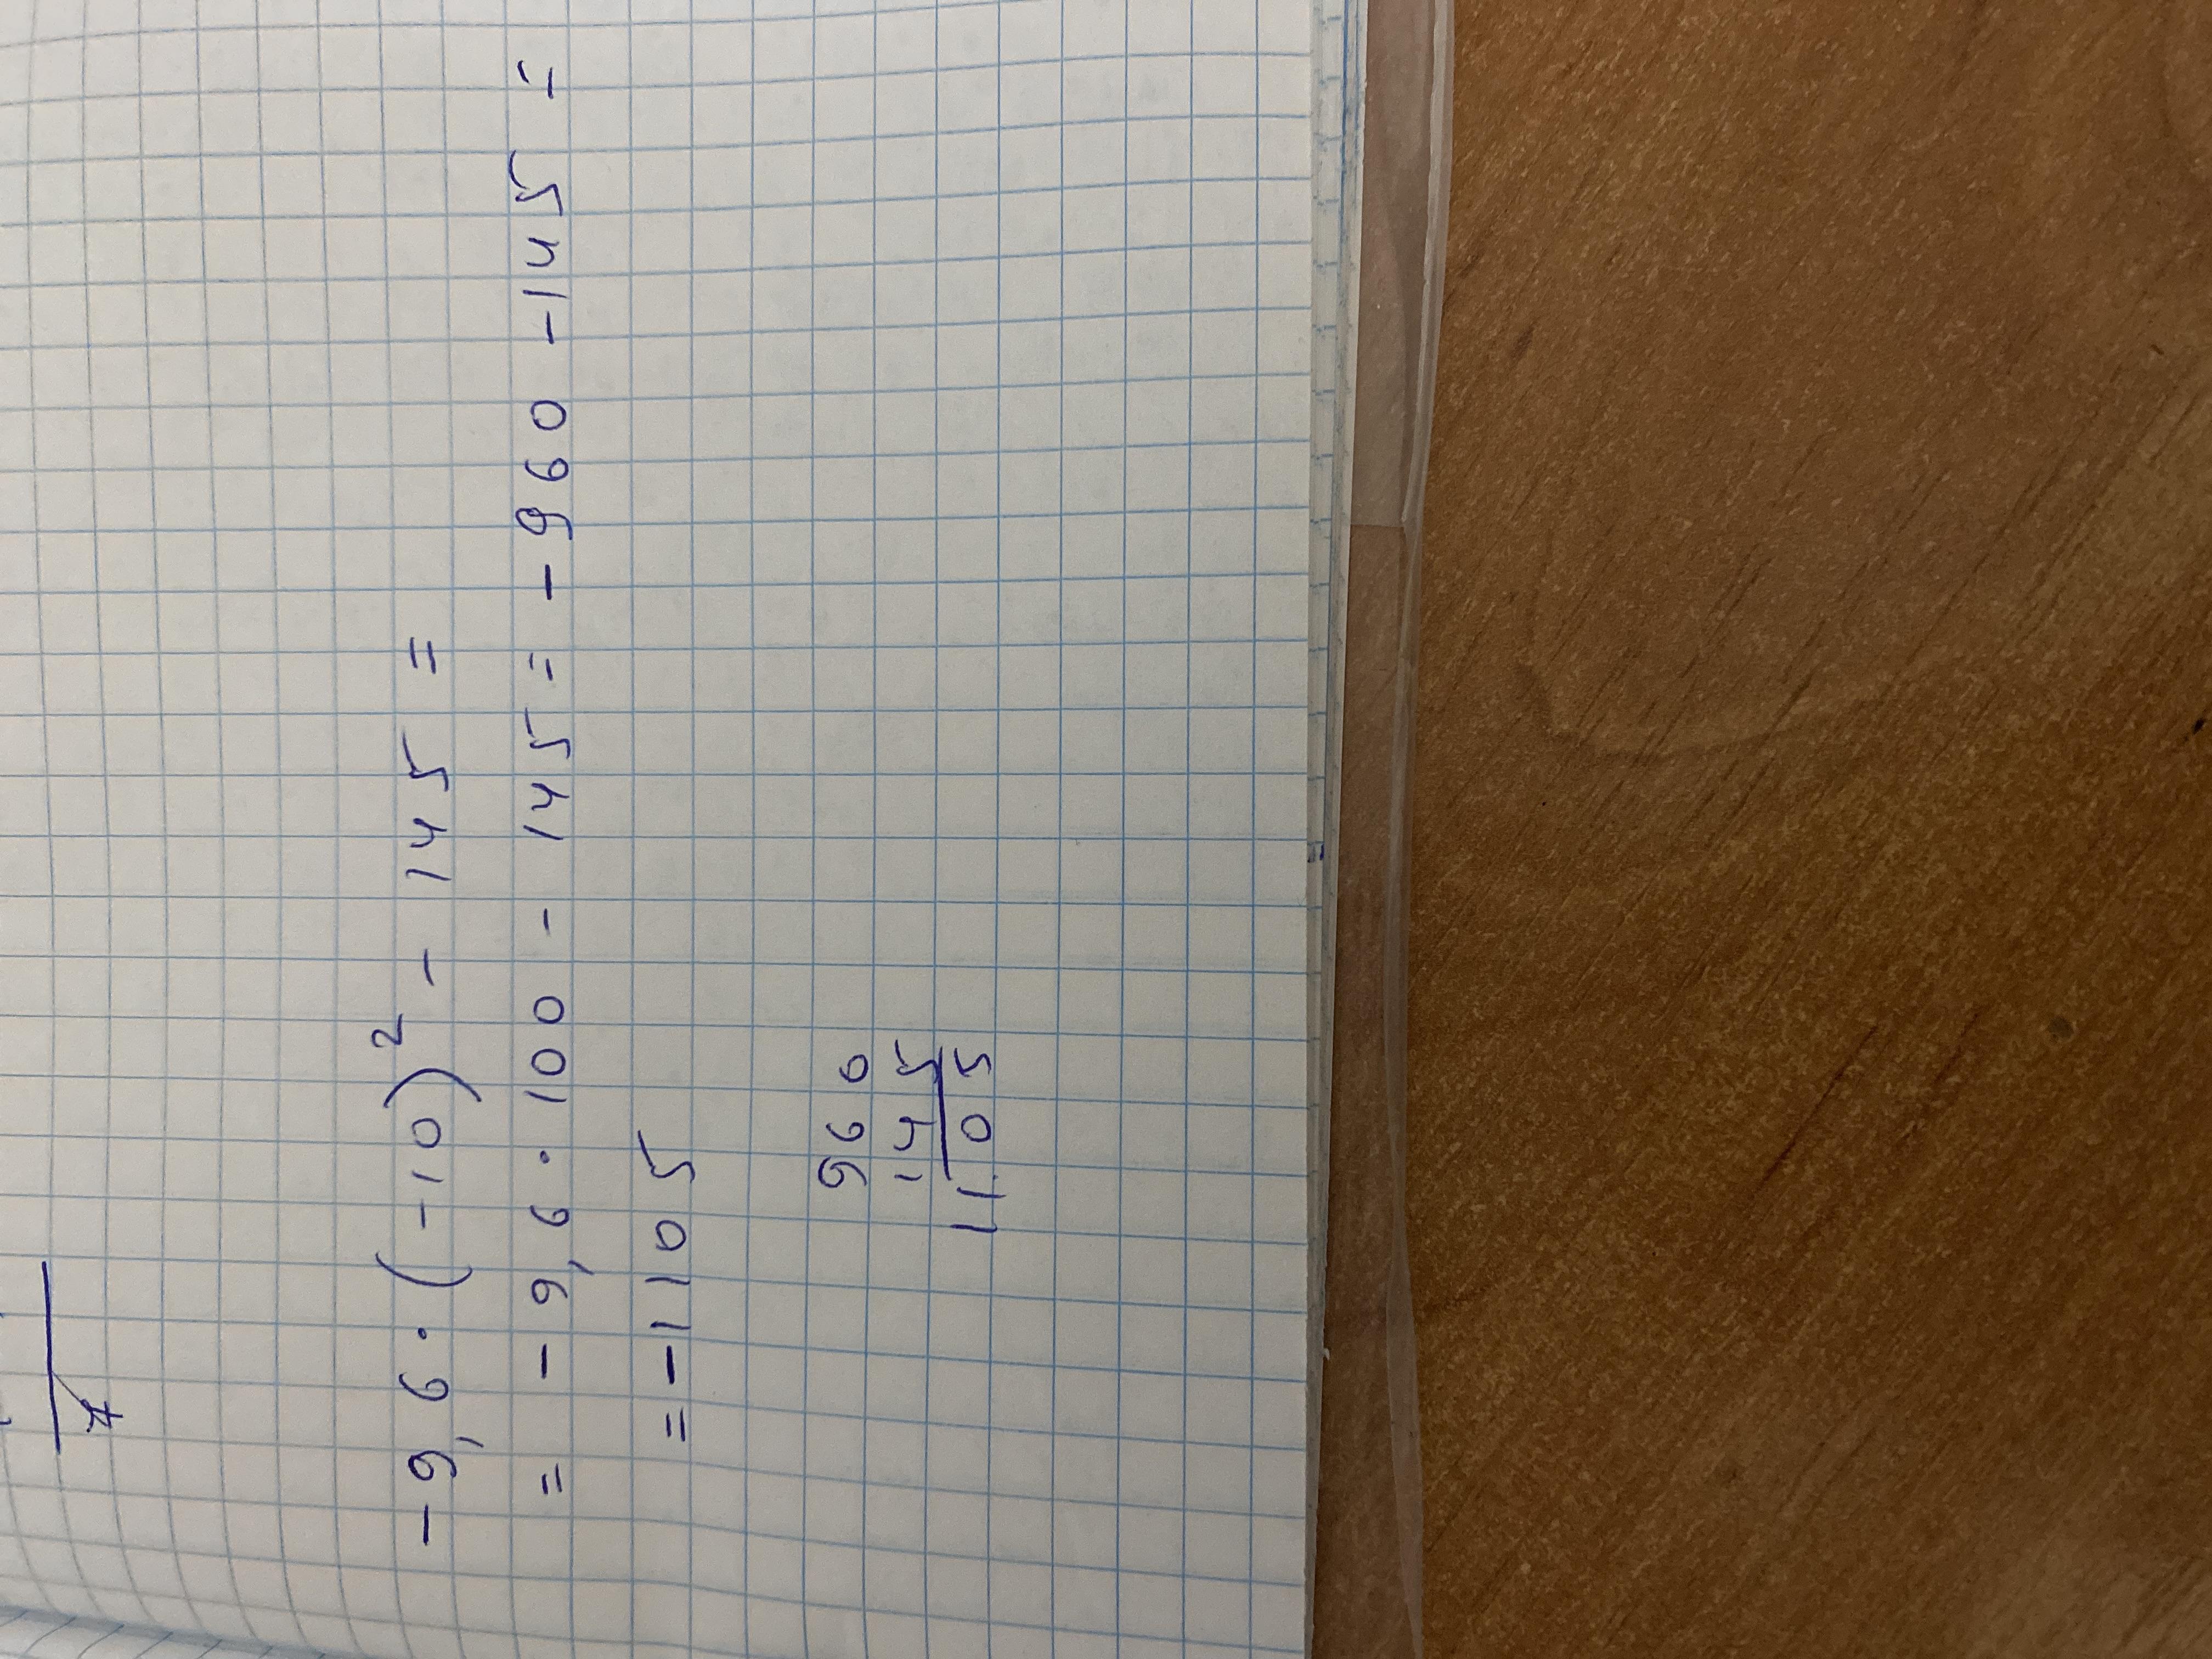 7
-9,6·(-10)² - 145 =
= -9,6·100 - 145 = -960 -145 =
= -1105
960
145
1105